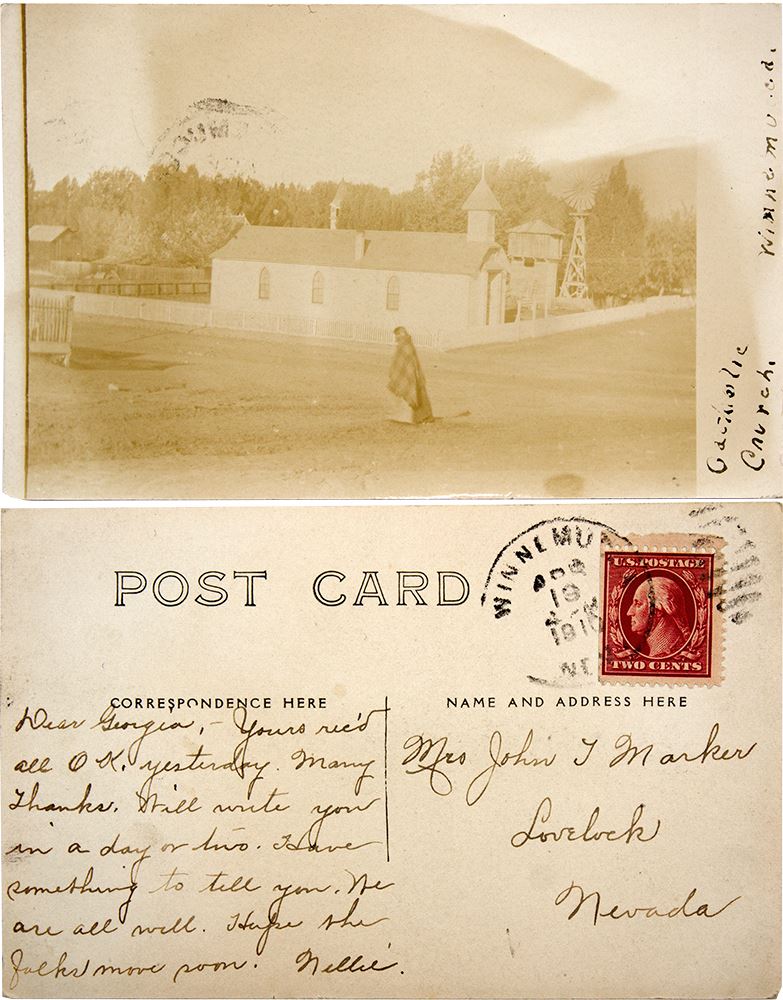 Catholic
Church.
Winnemucca.
POST CARD
WINNEMU
19
1910
NE
U.S. POSTAGE
TWO CENTS
CORRESPONDENCE HERE
NAME AND ADDRESS HERE
Dear Georgia, - Yours rec'd
all O K. yesterday. Many
Thanks. Will write you
in a day or two. Have
something to tell you. We
are all well. Hope the
folks move soon. Nellie.
Mrs John T Marker
Lovelock
Nevada